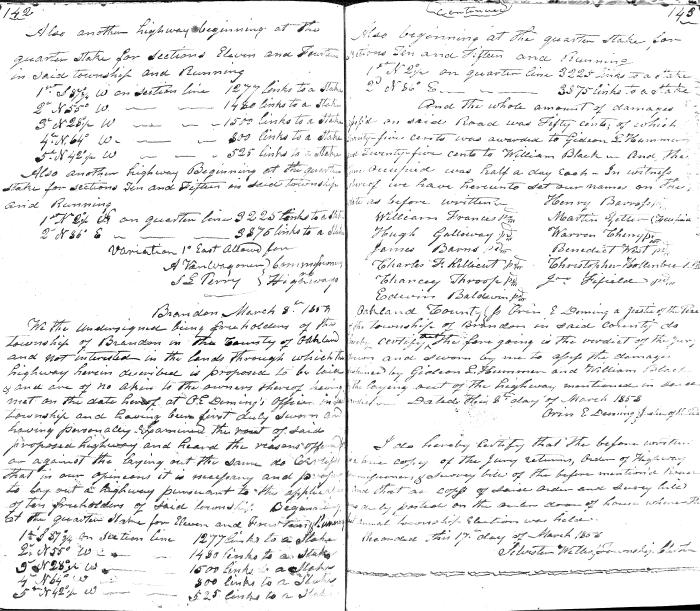 142
Also another highway beginning at the
quarter stake for sections Eleven and Fourteen
in said township and Running
1st S 87½ W on section line 1277 links to a Stake
2d N 55° W 1480 links to a Stake
3d N 28½ W 1500 links to a Stake
4th N 64° W 800 links to a Stake
5th N 42½ W 525 links to a Stake
Also another highway Beginning at the quarter
stake for sections Ten and Fifteen in said township
and Running
1st N 2½ on quarter line 3225 links to a
2d N 36° E 3575 links to a Stake
Variation 1° East Allowed for
A Van Wagoner Commissioners
S E Perry Highways
Brandon March 8th 1858
We the undersigned being freeholders of the
township of Brandon in the County of Oakland
and not interested in the lands through which the
highway herein described is proposed to be laid
& and are of no akin to the owners thereof having
met on the date hereof at O E Deming's office in
township and having been first duly sworn and
having personally Examined the rout of said
proposed highway and heard the reasons offered for
or against the laying out the same do Certify
that in our opinions it is necessary and proper
to lay out a highway pursuant to the
of ten freeholders of said township Beginning
at the quarter Stake for Eleven and Fourteen Running
1st S 87½ on section line 1277 links to a Stake
2d N 55° W 1480 links to a Stake
3d N 28½ W 1500 links to a Stake
4 N 64° W 800 links to a Stake
5th N 42½ W 525 links to a Stake
Continued
143
Also beginning at the quarter stake, for
sections Ten and Fifteen and Running
1st N 2½ on quarter line 3225 links to a stake
2d N 36° E. 3575 links to a Stake
And the whole amount of damages
on said Road was Fifty cents, of which
twenty-five cents was awarded to Gideon E Hummer
and Twenty-five cents to William Black And the
time occupied was half a day Each In witness
whereof we have hereunto set our names on the
date as before written Henry
William Frances Martin
Hugh Galloway Warren Cheny
James Barns Benedict West
Charles F Christopher
Chancey Throop Fifield
Edwin Baldwin
Oakland County, ss Orin E Deming a Justice of the Peace
the township of Brandon in said County do
hereby certify the fore going is the verdict of the Jury
and sworn by me to assess the damages
by Gideon E Hummer and William Black
the laying out of the highway mentioned in
Dated this 8th day of March 1858
Orin E Deming
I do hereby Certify that the before written
true copy of the Jury returns, Order of Highway
Commissioners & Survey bill of the before mentioned
and that a copy of said Order and Survey bill
posted on the outer door of house where the
annual township Election was held.
Recorded this 17th day of March 1858
Township Clerk